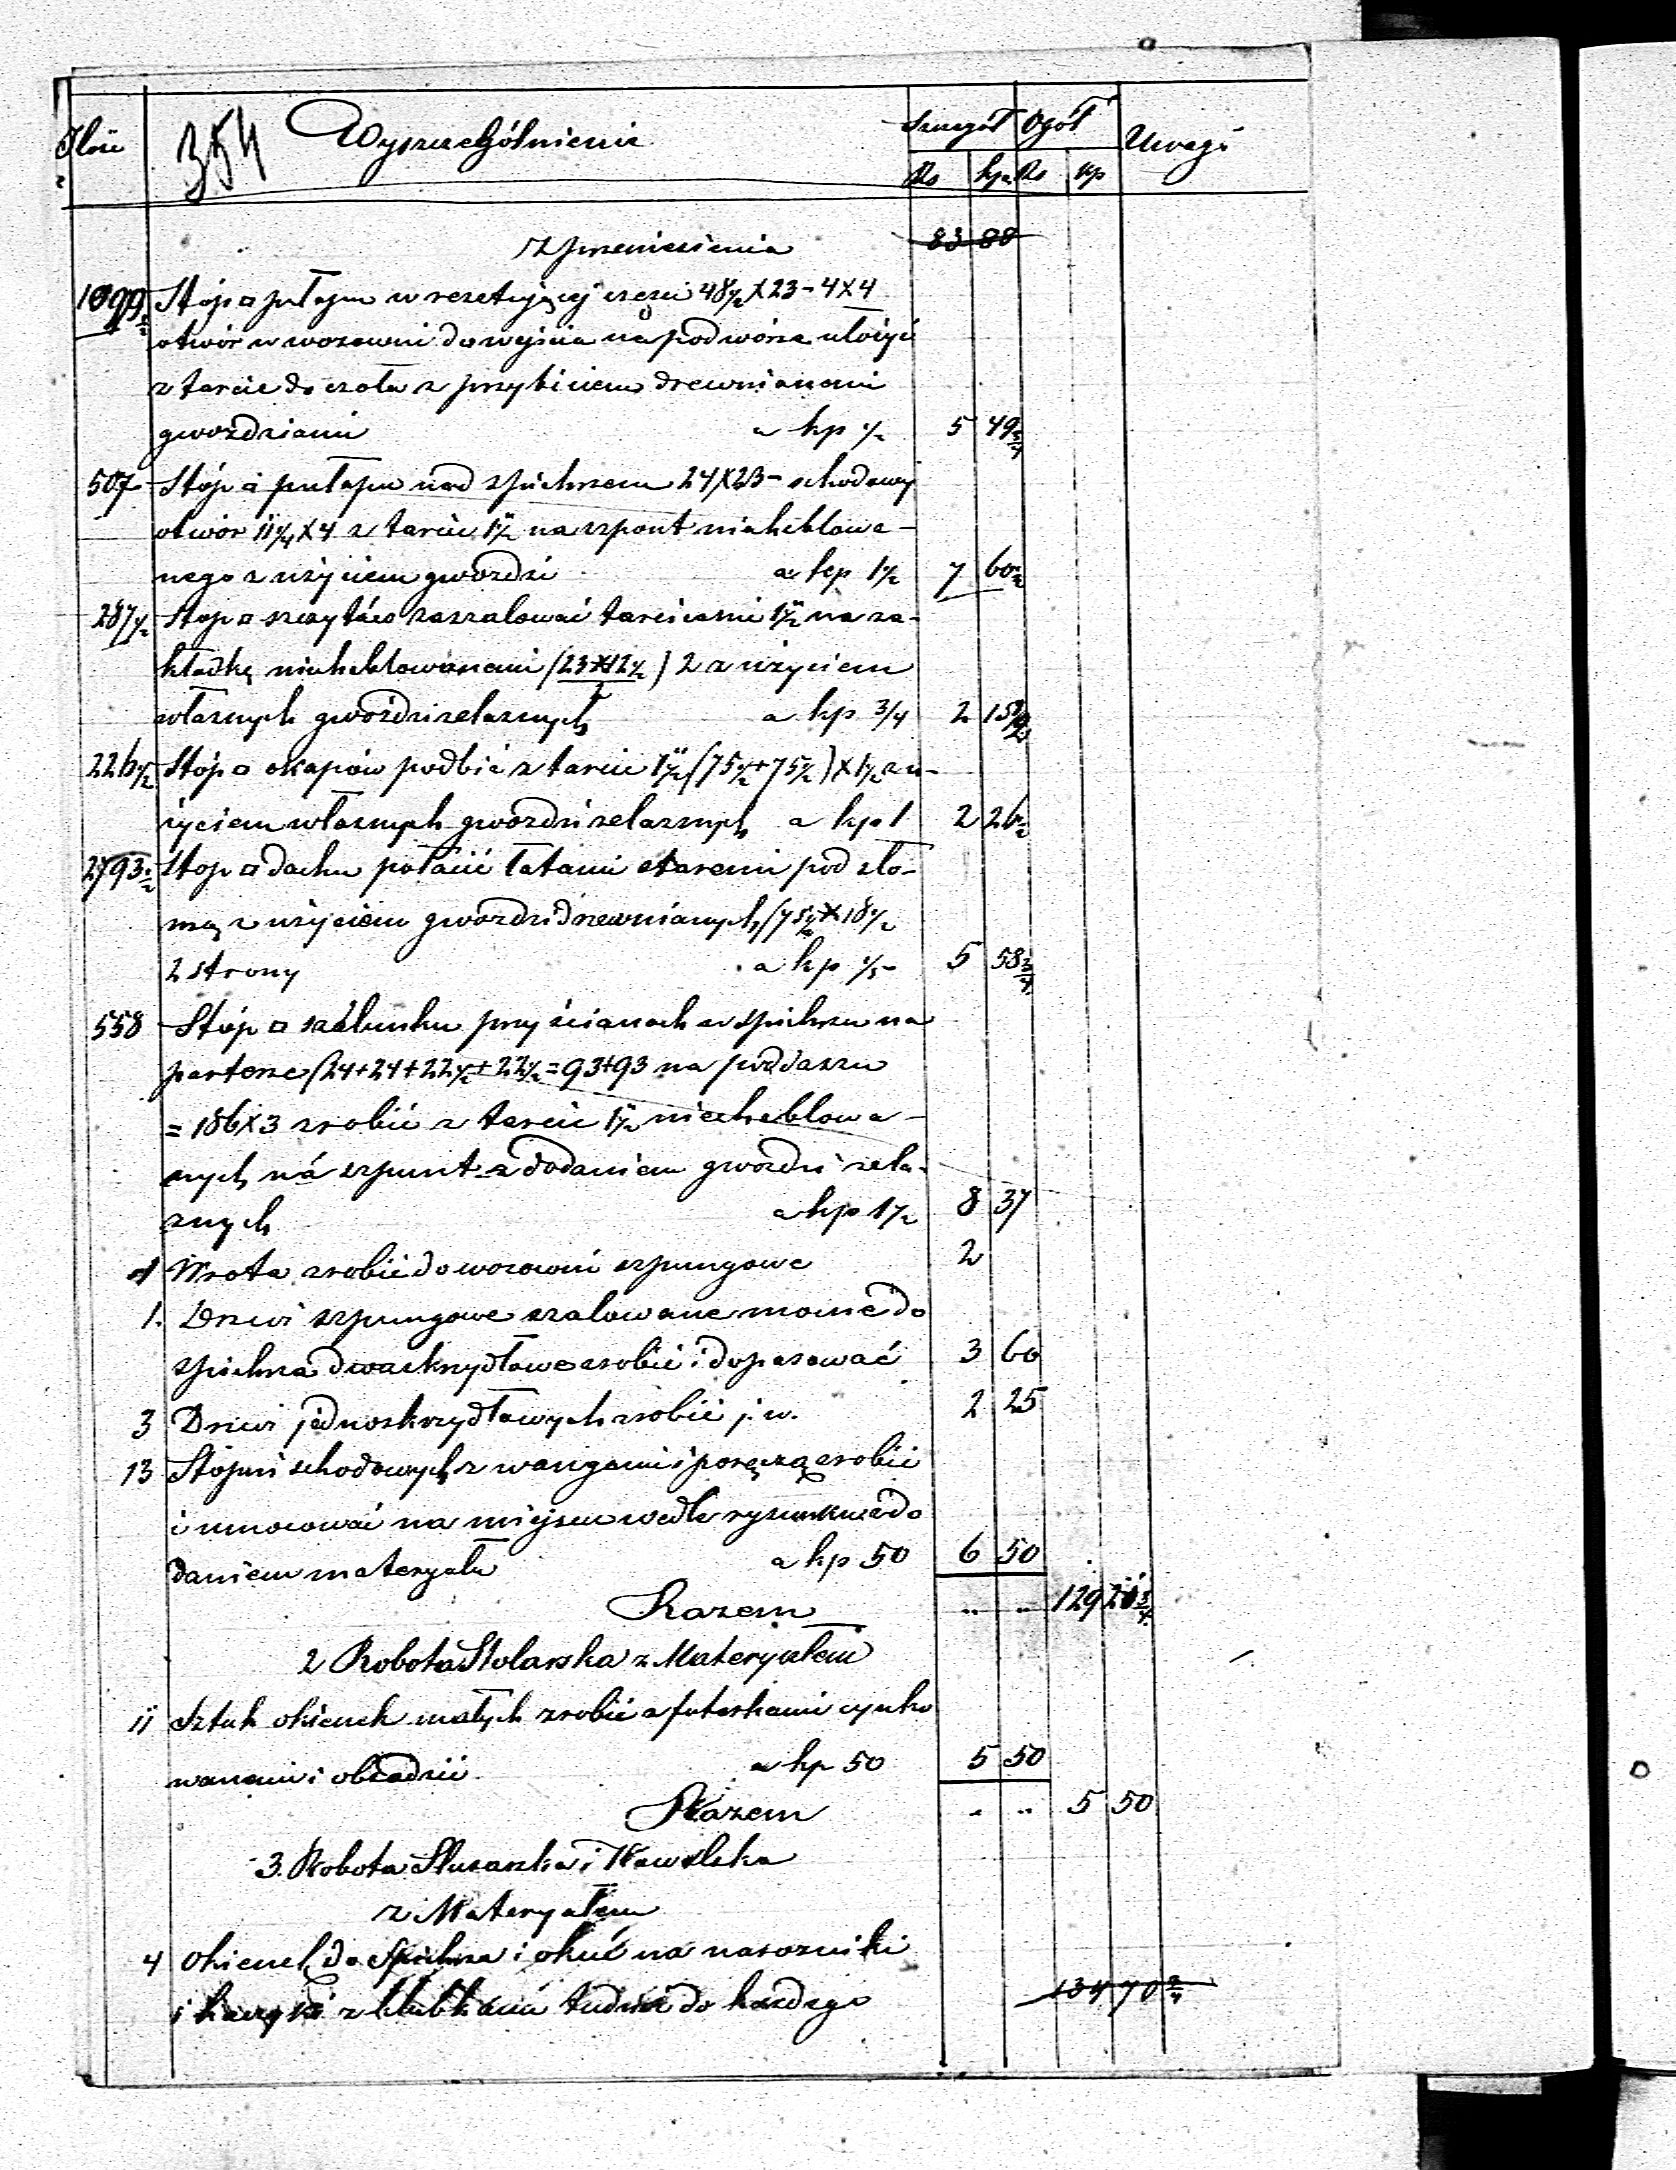 Ilość 354 Wyszczególnienie Szczegół Ogół Uwagi
Rs kp Rs kp
Z przeniesienia 83 80
1099½ Stóp □ pułapu w resztującej części 48½ X 23 – 4 X 4
otwór w wozowni do wejścia na podwórze ułożyć
z tarcic do czoła z przybiciem drewnianemi
gwoździami a kp ½ 5 49¾
507 Stóp □ pułapu nad spichrzem 24 X 23 – schodowy
otwór 11¼ X 4 z tarcic 1½" na szpont nieheblowa–
nego z użyciem gwoździ a kp 1½ 7 60½
287½ Stóp □ szczytów zaszalować tarcicami 1½" na za-
kładkę nieheblowanemi (23 X 12½) 2 z użyciem
własnych gwoździ żelaznych a kp ¾ 2 15
226½ Stóp □ okapów podbić z tarcic 1½" (75½ + 75½) X 1½ z u-
życiem własnych gwoździ żelaznych a kp 1 2 26½
2793½ Stóp □ dachu połacić łatami staremi pod sło-
mę z użyciem gwoździ drewnianych (75½ X 18½
2 strony a kp ⅕ 5 58¾
558 Stóp □ szalunku przy ścianach w spichrzu na
parterze (24+24+22½+22½ = 93+93 na poddaszu
= 186 X 3 zrobić z tarcic 1½" nieheblowa–
nych na szpunt z dodaniem gwoździ żela-
znych a kp 1½ 8 37
1 Wrota zrobić do wozowni szpungowe 2
1. Drzwi szpungowe szalowane mocne do
spichrza dwuskrzydłowe zrobić i dopasować 3 60
3 Drzwi jednoskrzydłowych zrobić j. w. 2 25
13 Stopni schodowych z wangami i poręczą zrobić
i umocować na miejscu wedle rysunku z do
daniem materyału a kp 50 6 50
Razem .. .. 129 20¾
2 Robota Stolarska z Materyałem
11 Sztuk okienek małych zrobić z futerkami cynko
wanemi i obsadzić a kp 50 5 50
Razem .. .. 5 50
3. Robota Ślusarska i Kowalska
z Materyałem
4 Okienek do Spichrza i okuć na narożniki
i haczyki z klubkami tudzież do każdego 134 70¾